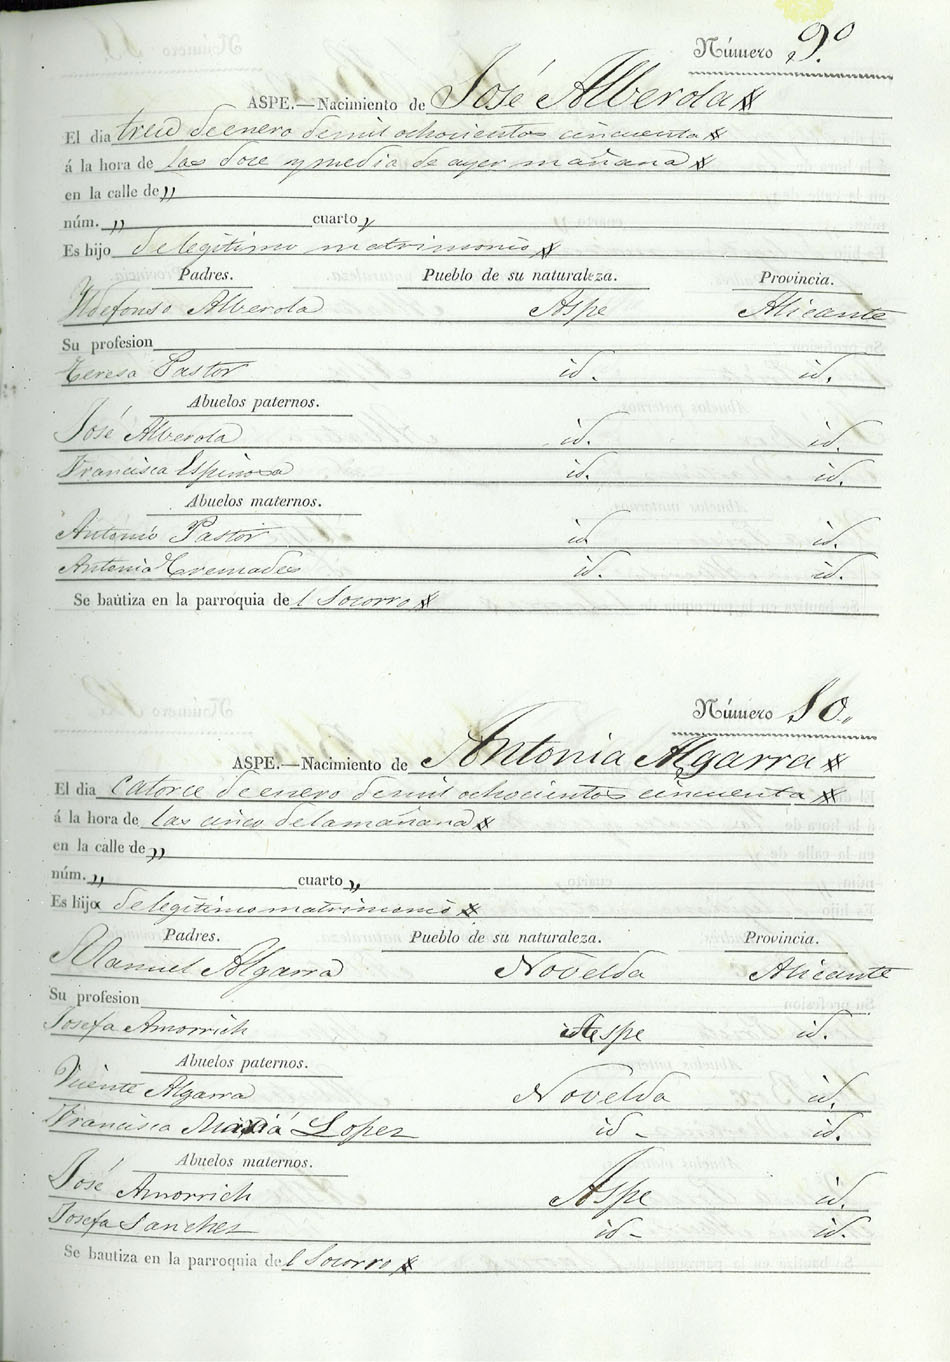 Número 9º
ASPE.—Nacimiento de José Alberola
El dia trece de enero de mil ochocientos cincuenta
á la hora de las doce y media de ayer mañana
en la calle de „
núm. „ cuarto „
Es hijo de legitimo matrimonio
Padres. Pueblo de su naturaleza. Provincia.
Yldefonso Alberola Aspe Alicante
Su profesion
Teresa Pastor id. id.
Abuelos paternos.
José Alberola id. id.
Francisca Espinosa id. id.
Abuelos maternos.
Antonio Pastor id id.
Antonia Cremades id. id.
Se bautiza en la parroquia del Socorro
Número 10.
ASPE.—Nacimiento de Antonia Algarra
El dia catorce de enero de mil ochocientos cincuenta
á la hora de las cinco de la mañana
en la calle de „
núm. „ cuarto „
Es hija de legitimo matrimonio
Padres. Pueblo de su naturaleza. Provincia.
Manuel Algarra Novelda Alicante
Su profesion
Josefa Amorrich Aspe id.
Abuelos paternos.
Vicente Algarra Novelda id.
Francisca Maria Lopez id - id.
Abuelos maternos.
José Amorrich Aspe id.
Josefa Sanchez id - id.
Se bautiza en la parroquia del Socorro